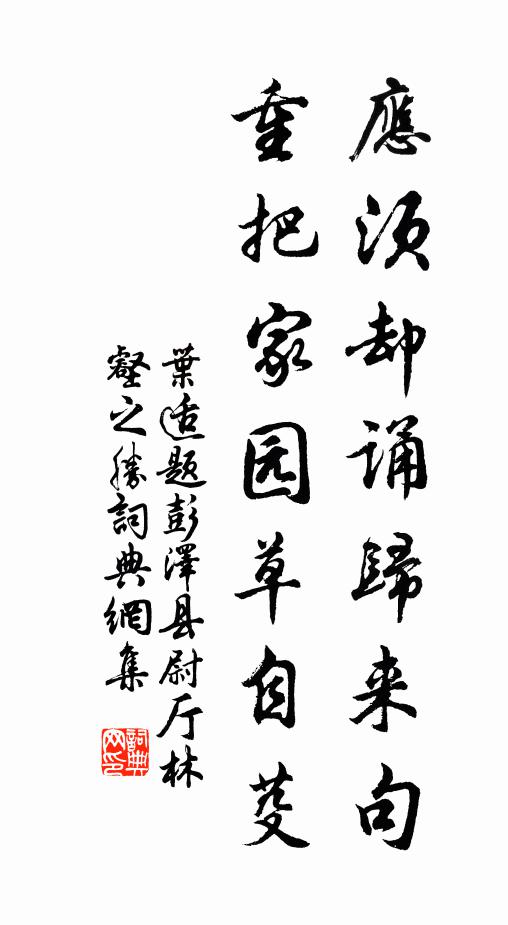 應須却誦歸来句
重把家园草自芟
葉适題彭澤县尉厅林
壑之勝詞典網集
詞典网印